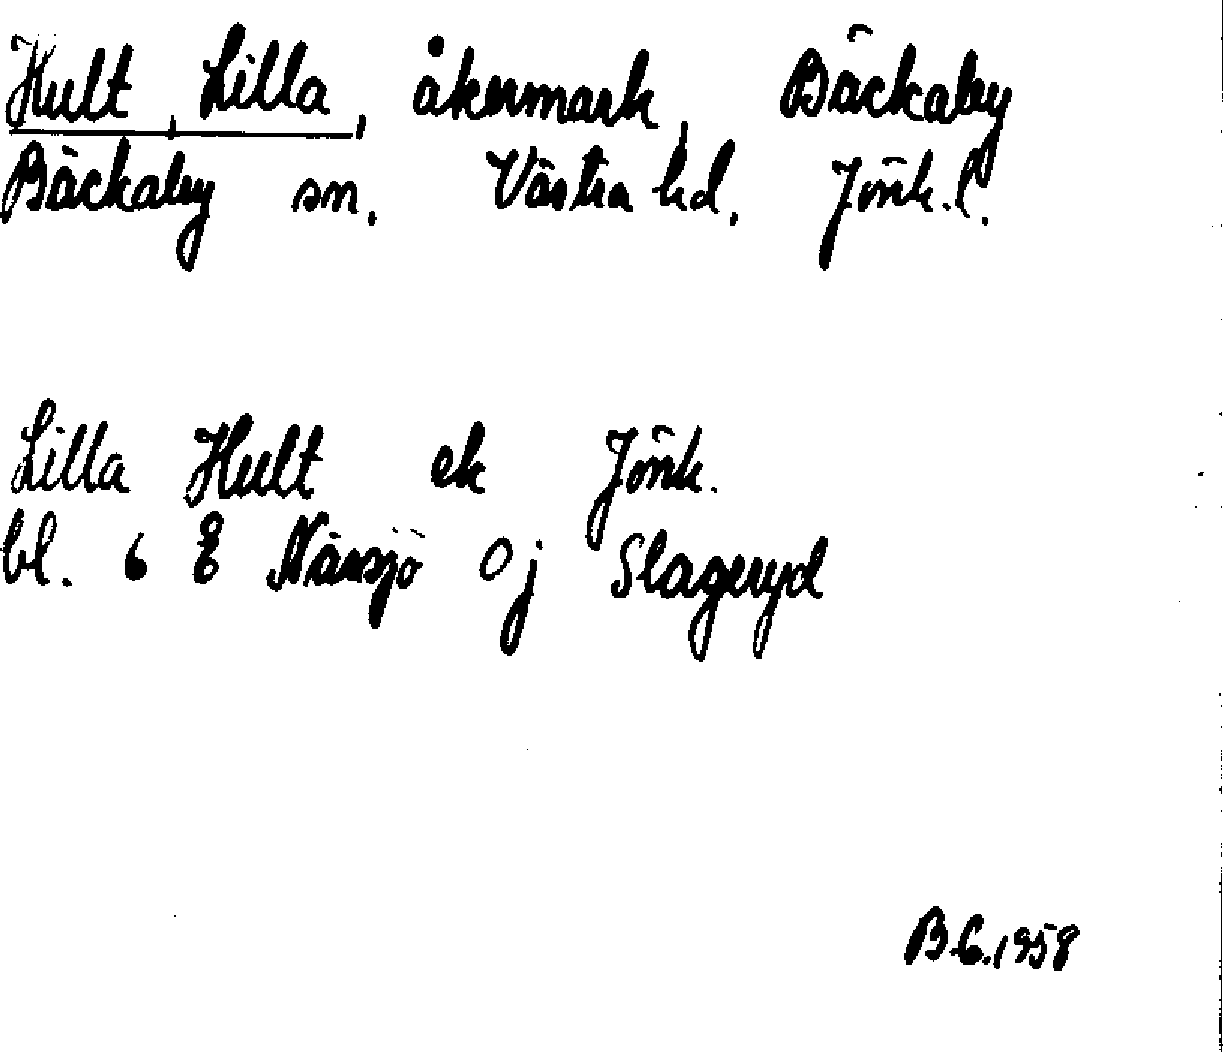 Hult, Lilla, åkermark, Bäckaby
Bäckaby sn. Västra hd. Jönk. l.
Lilla Hult ek Jönk.
bl. 6 E Nässjö 0 j Slageryd
B.C. 1958